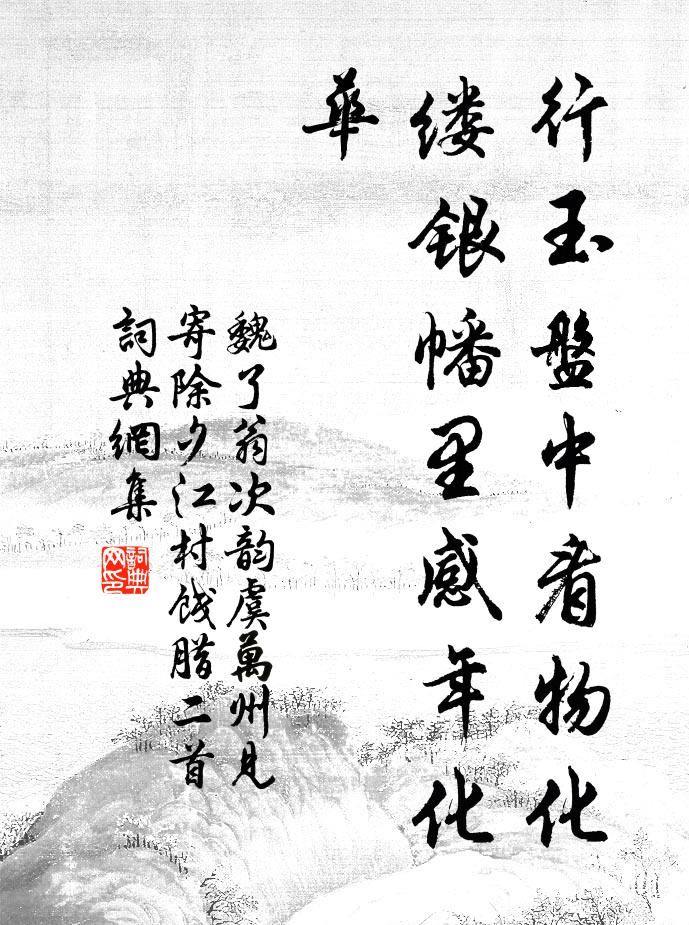 行玉盤中看物化
缕银幡里感年化
華
魏了翁次韵虞萬州見
寄除夕江村饯腊二首
詞典網集
詞典网印